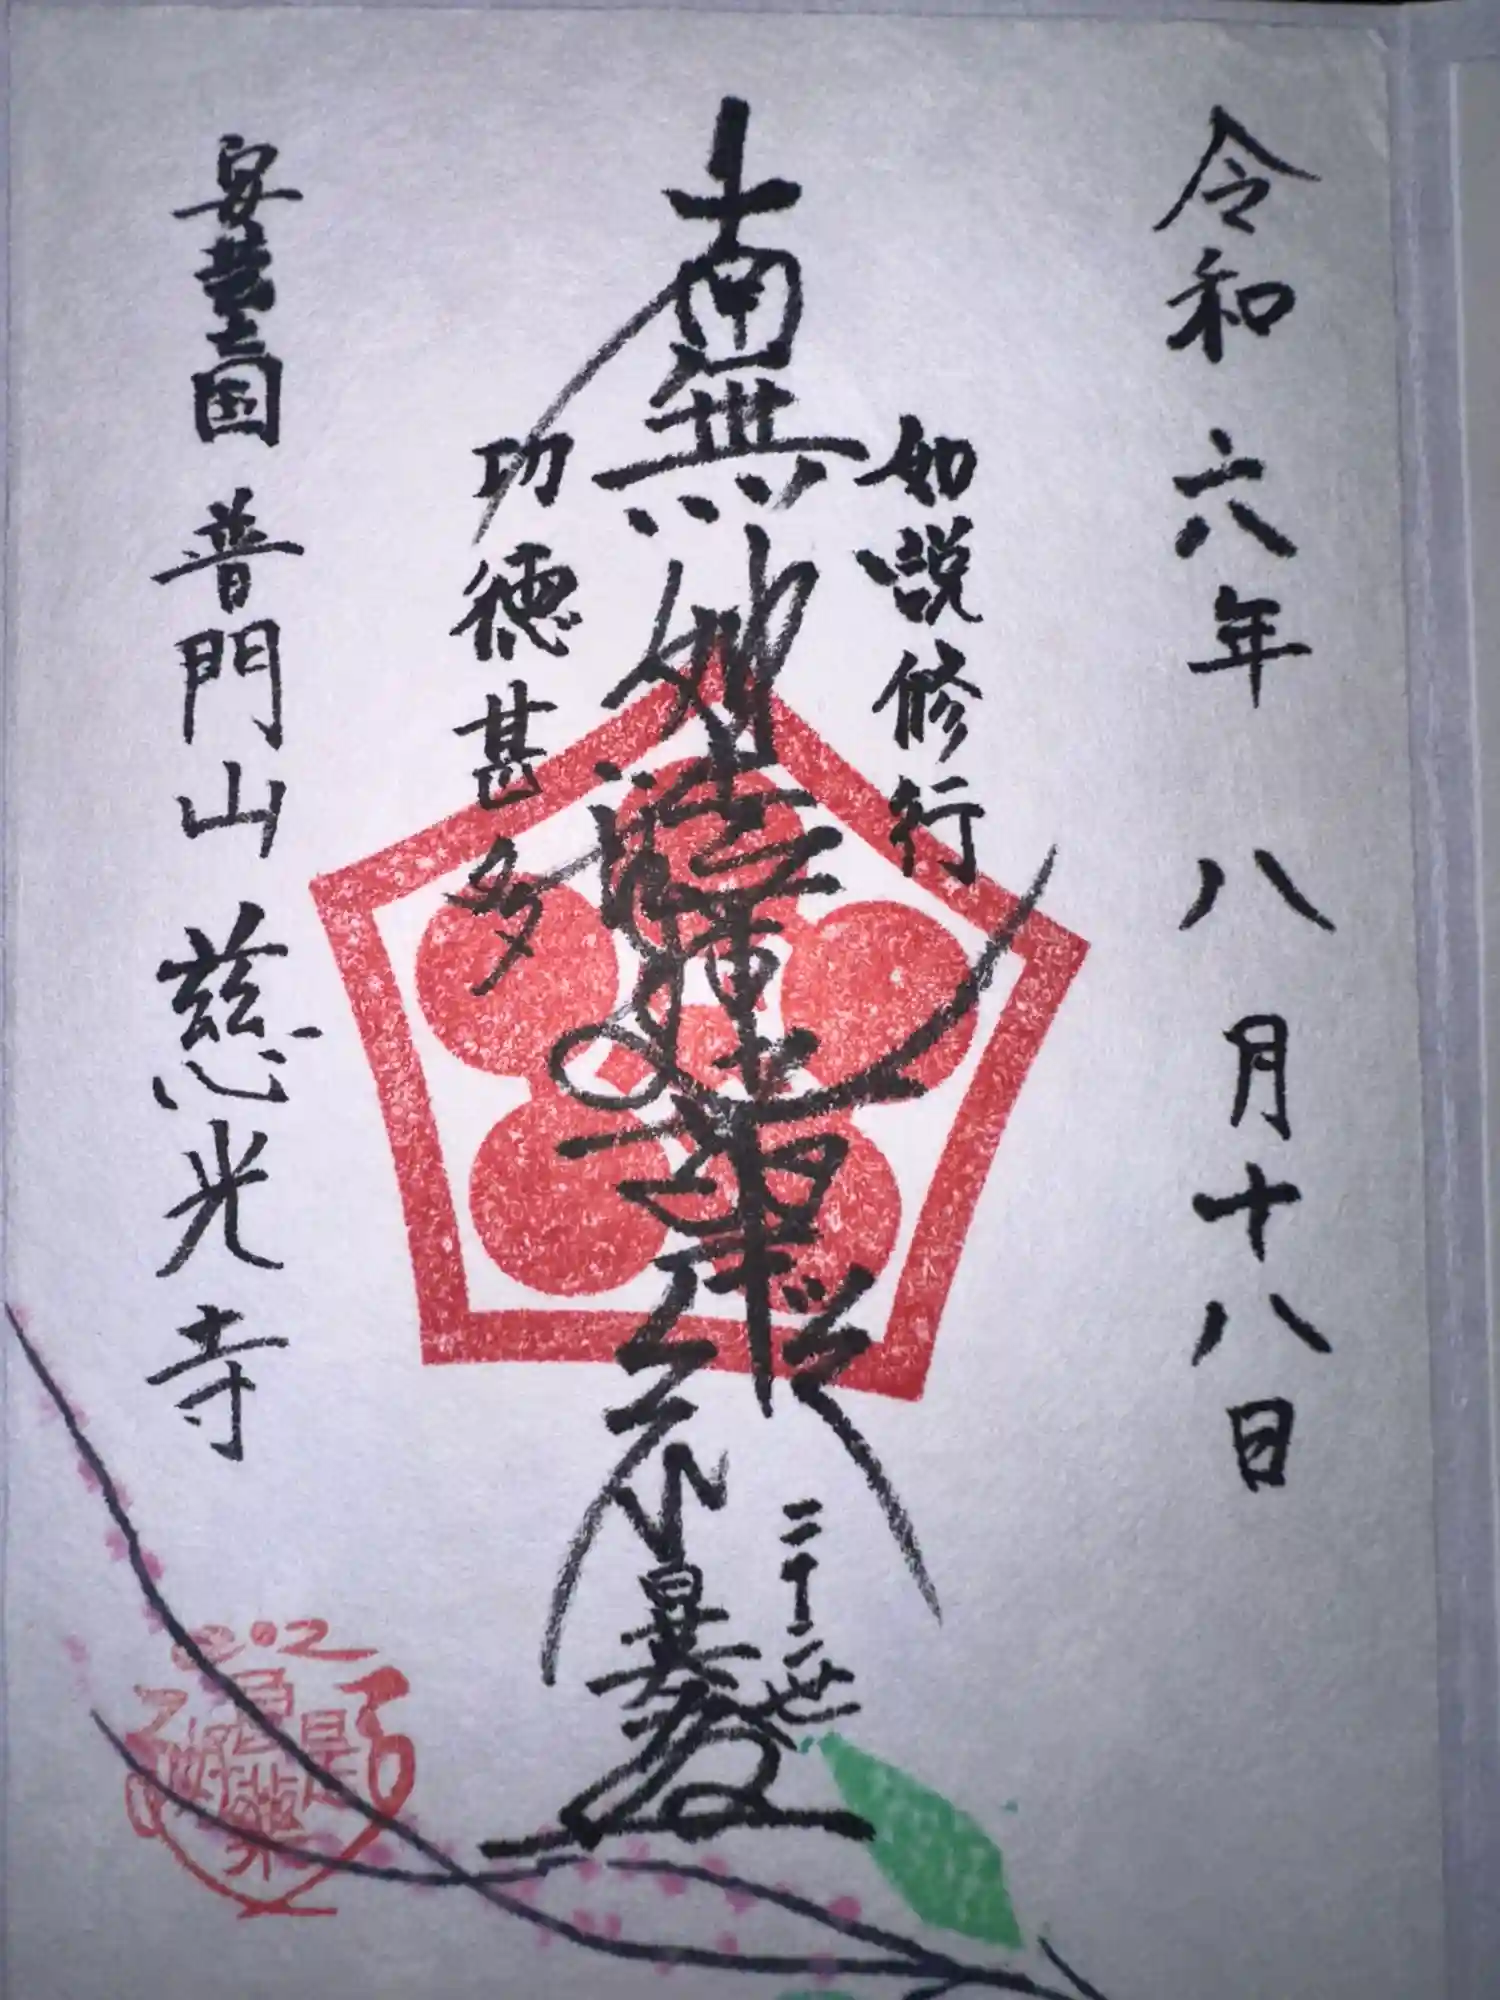 令和六年 八月十八日
如説修行
南無妙法蓮華経
二十二世
功徳甚多
安芸国 普門山 慈光寺